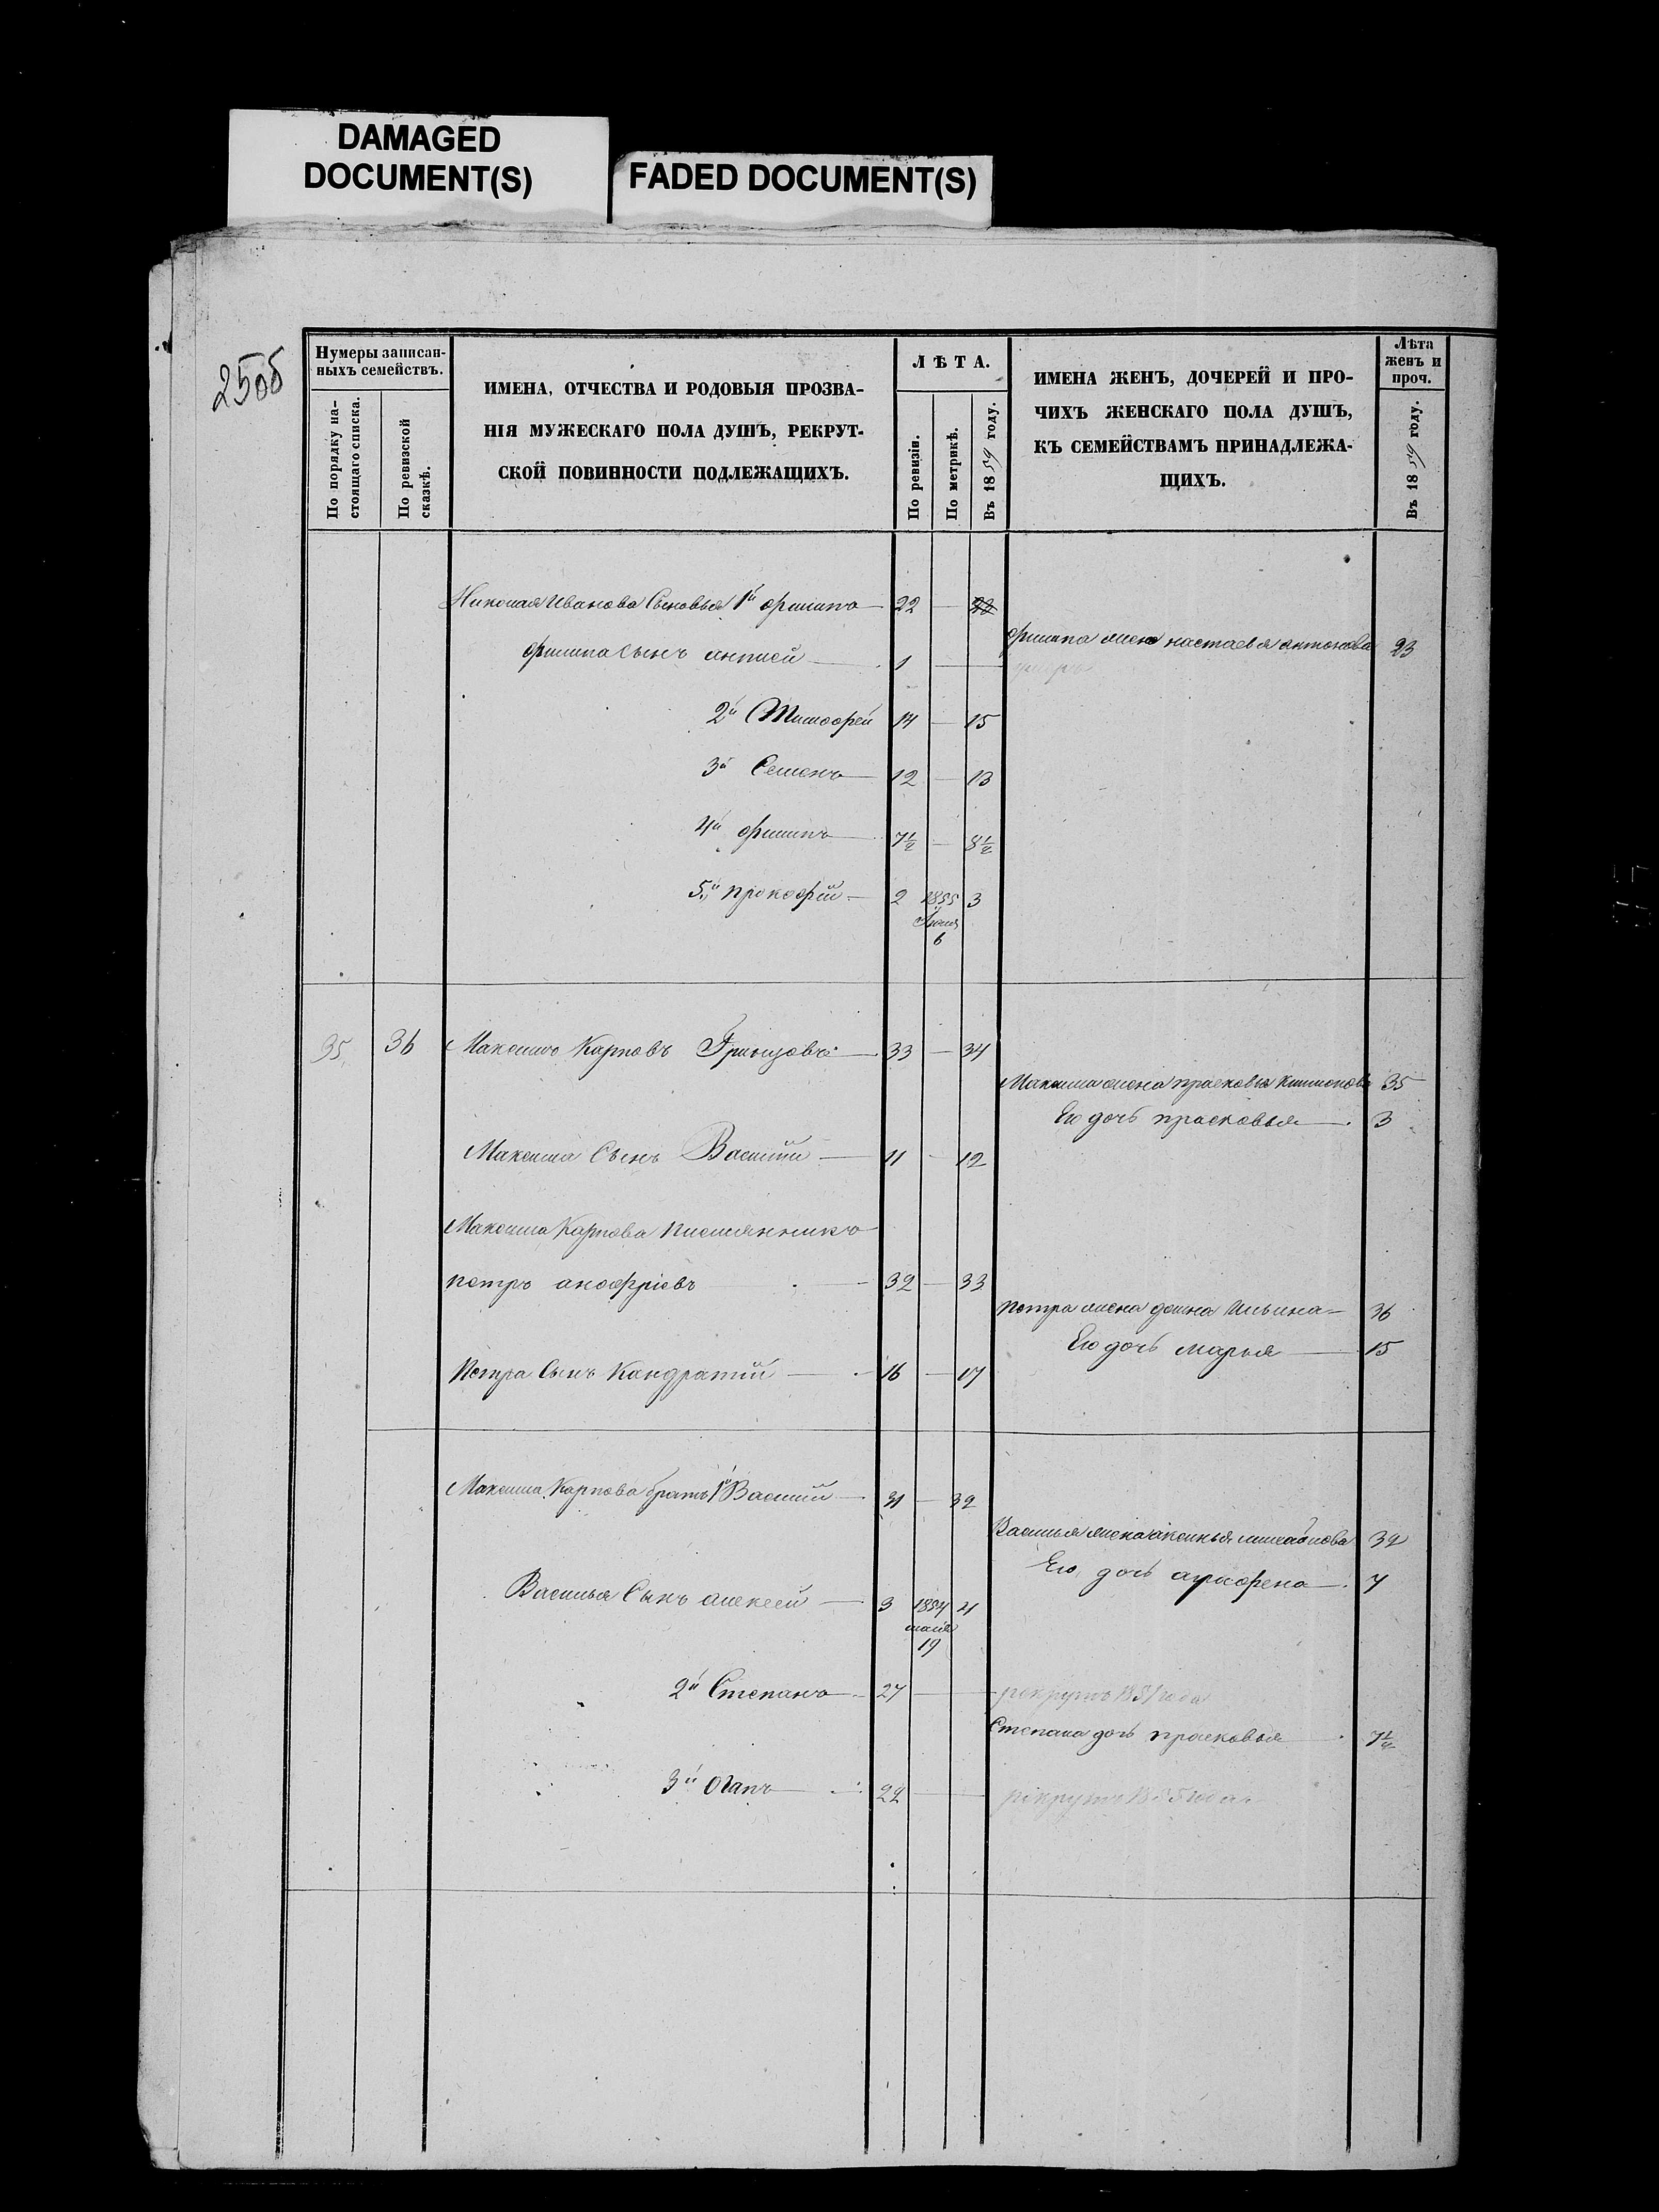 DAMAGED
DOCUMENT(S)
FADED DOCUMENT(S)
25об
Нумеры записан-
ныхъ семействъ.
По порядку на-
стоящаго списка.
По ревизской
сказкѣ.
ИМЕНА, ОТЧЕСТВА И РОДОВЫЯ ПРОЗВА-
НІЯ МУЖЕСКАГО ПОЛА ДУШЪ, РЕКРУТ-
СКОЙ ПОВИННОСТИ ПОДЛЕЖАЩИХЪ.
ЛѢТА.
По ревизіи.
По метрикѣ.
Въ 1859 году.
ИМЕНА ЖЕНЪ, ДОЧЕРЕЙ И ПРО-
ЧИХЪ ЖЕНСКАГО ПОЛА ДУШЪ,
КЪ СЕМЕЙСТВАМЪ ПРИНАДЛЕЖА-
ЩИХЪ.
Лѣта
женъ и
проч.
Въ 1859 году.
Николая Иванова Сыновья 1й филипъ 22 — 23
филипа жена настасья антонова 23
филипа Сынъ 1 — умеръ
2й Тимофей 14 — 15
3й Семенъ 12 — 13
4й филипъ 7½ — 8½
5й прокофій 2 1855 3
Июня
6
35 36 Максимъ Карповъ 33 — 34
Максима жена прасковья 35
Его дочь прасковья 3
Максима Сынъ Василій 11 — 12
Максима Карпова племянникъ
петръ анофріевъ 32 — 33
петра жена домна Ильина 36
Его дочь марья 15
Петра Сынъ Кандратій 16 — 17
Максима Карпова братъ 1й Василій 31 — 32
Василья жена аксинья 32
Его дочь 7
Василья Сынъ алексей 3 1854 4
майя
19
2й Степанъ 27 — рекрутъ 1851 года
Степана дочь прасковья 7½
3й Огапъ 22 — рекрутъ 1855 года